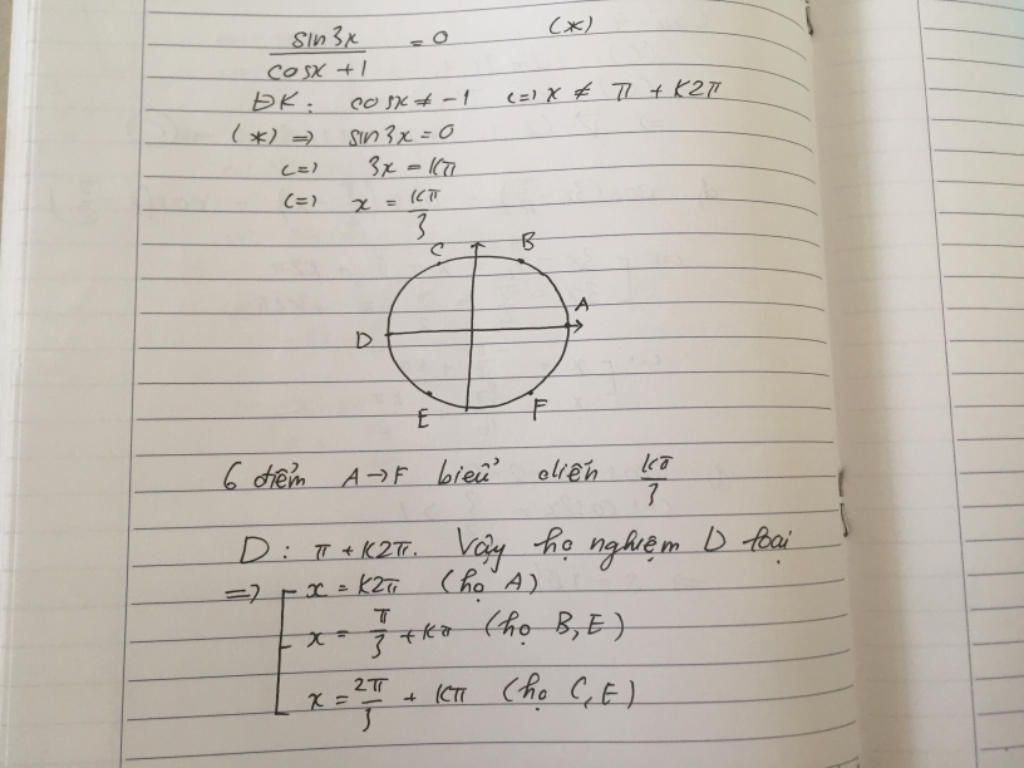 sin3x / (cosx + 1) = 0 (*)
ĐK: cosx ≠ -1 <=> x ≠ π + K2π
(*) => sin3x = 0
<=> 3x = Kπ
<=> x = Kπ/3
C B
A
D
E F
6 điểm A → F biểu diễn Kπ/3
D: π + K2π. Vậy họ nghiệm D loại
=> [ x = K2π (họ A)
x = π/3 + Kπ (họ B, E)
x = 2π/3 + Kπ (họ C, E)